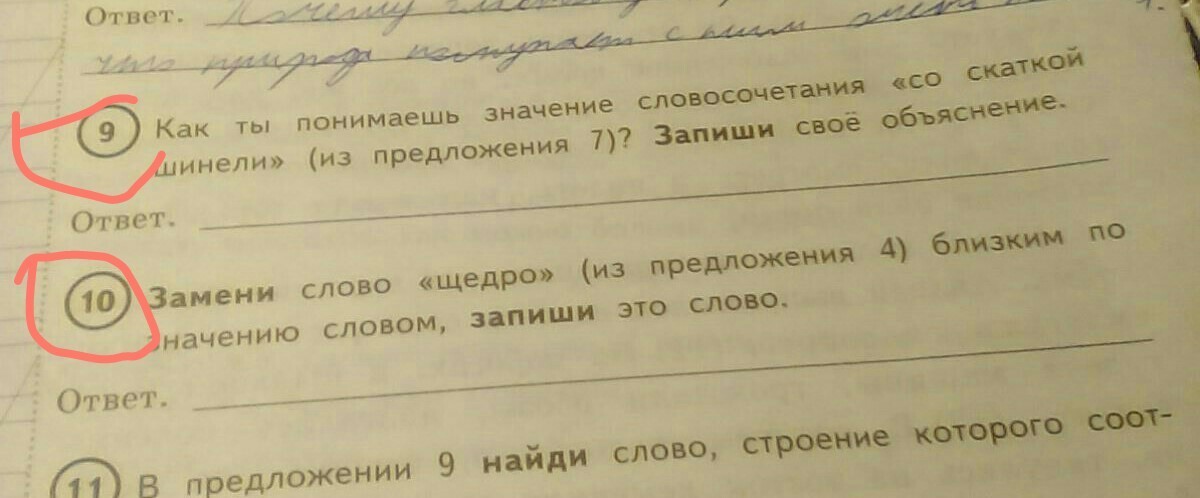 Ответ. Почему
что природа поступает с ним очень
9 Как ты понимаешь значение словосочетания «со скаткой
шинели» (из предложения 7)? Запиши своё объяснение.
Ответ.
10 Замени слово «щедро» (из предложения 4) близким по
значению словом, запиши это слово.
Ответ.
11 В предложении 9 найди слово, строение которого соот-